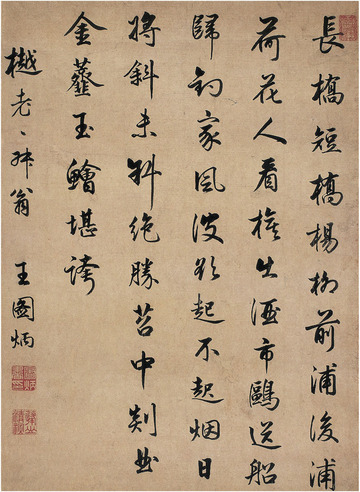 長橋短橋楊柳前浦後浦
荷花人看旗出酒市鷗送船
歸釣家風波欲起不起烟日
將斜未斜絕勝苕中剡曲
金虀玉鱠堪誇
樾老翁 王圖炳